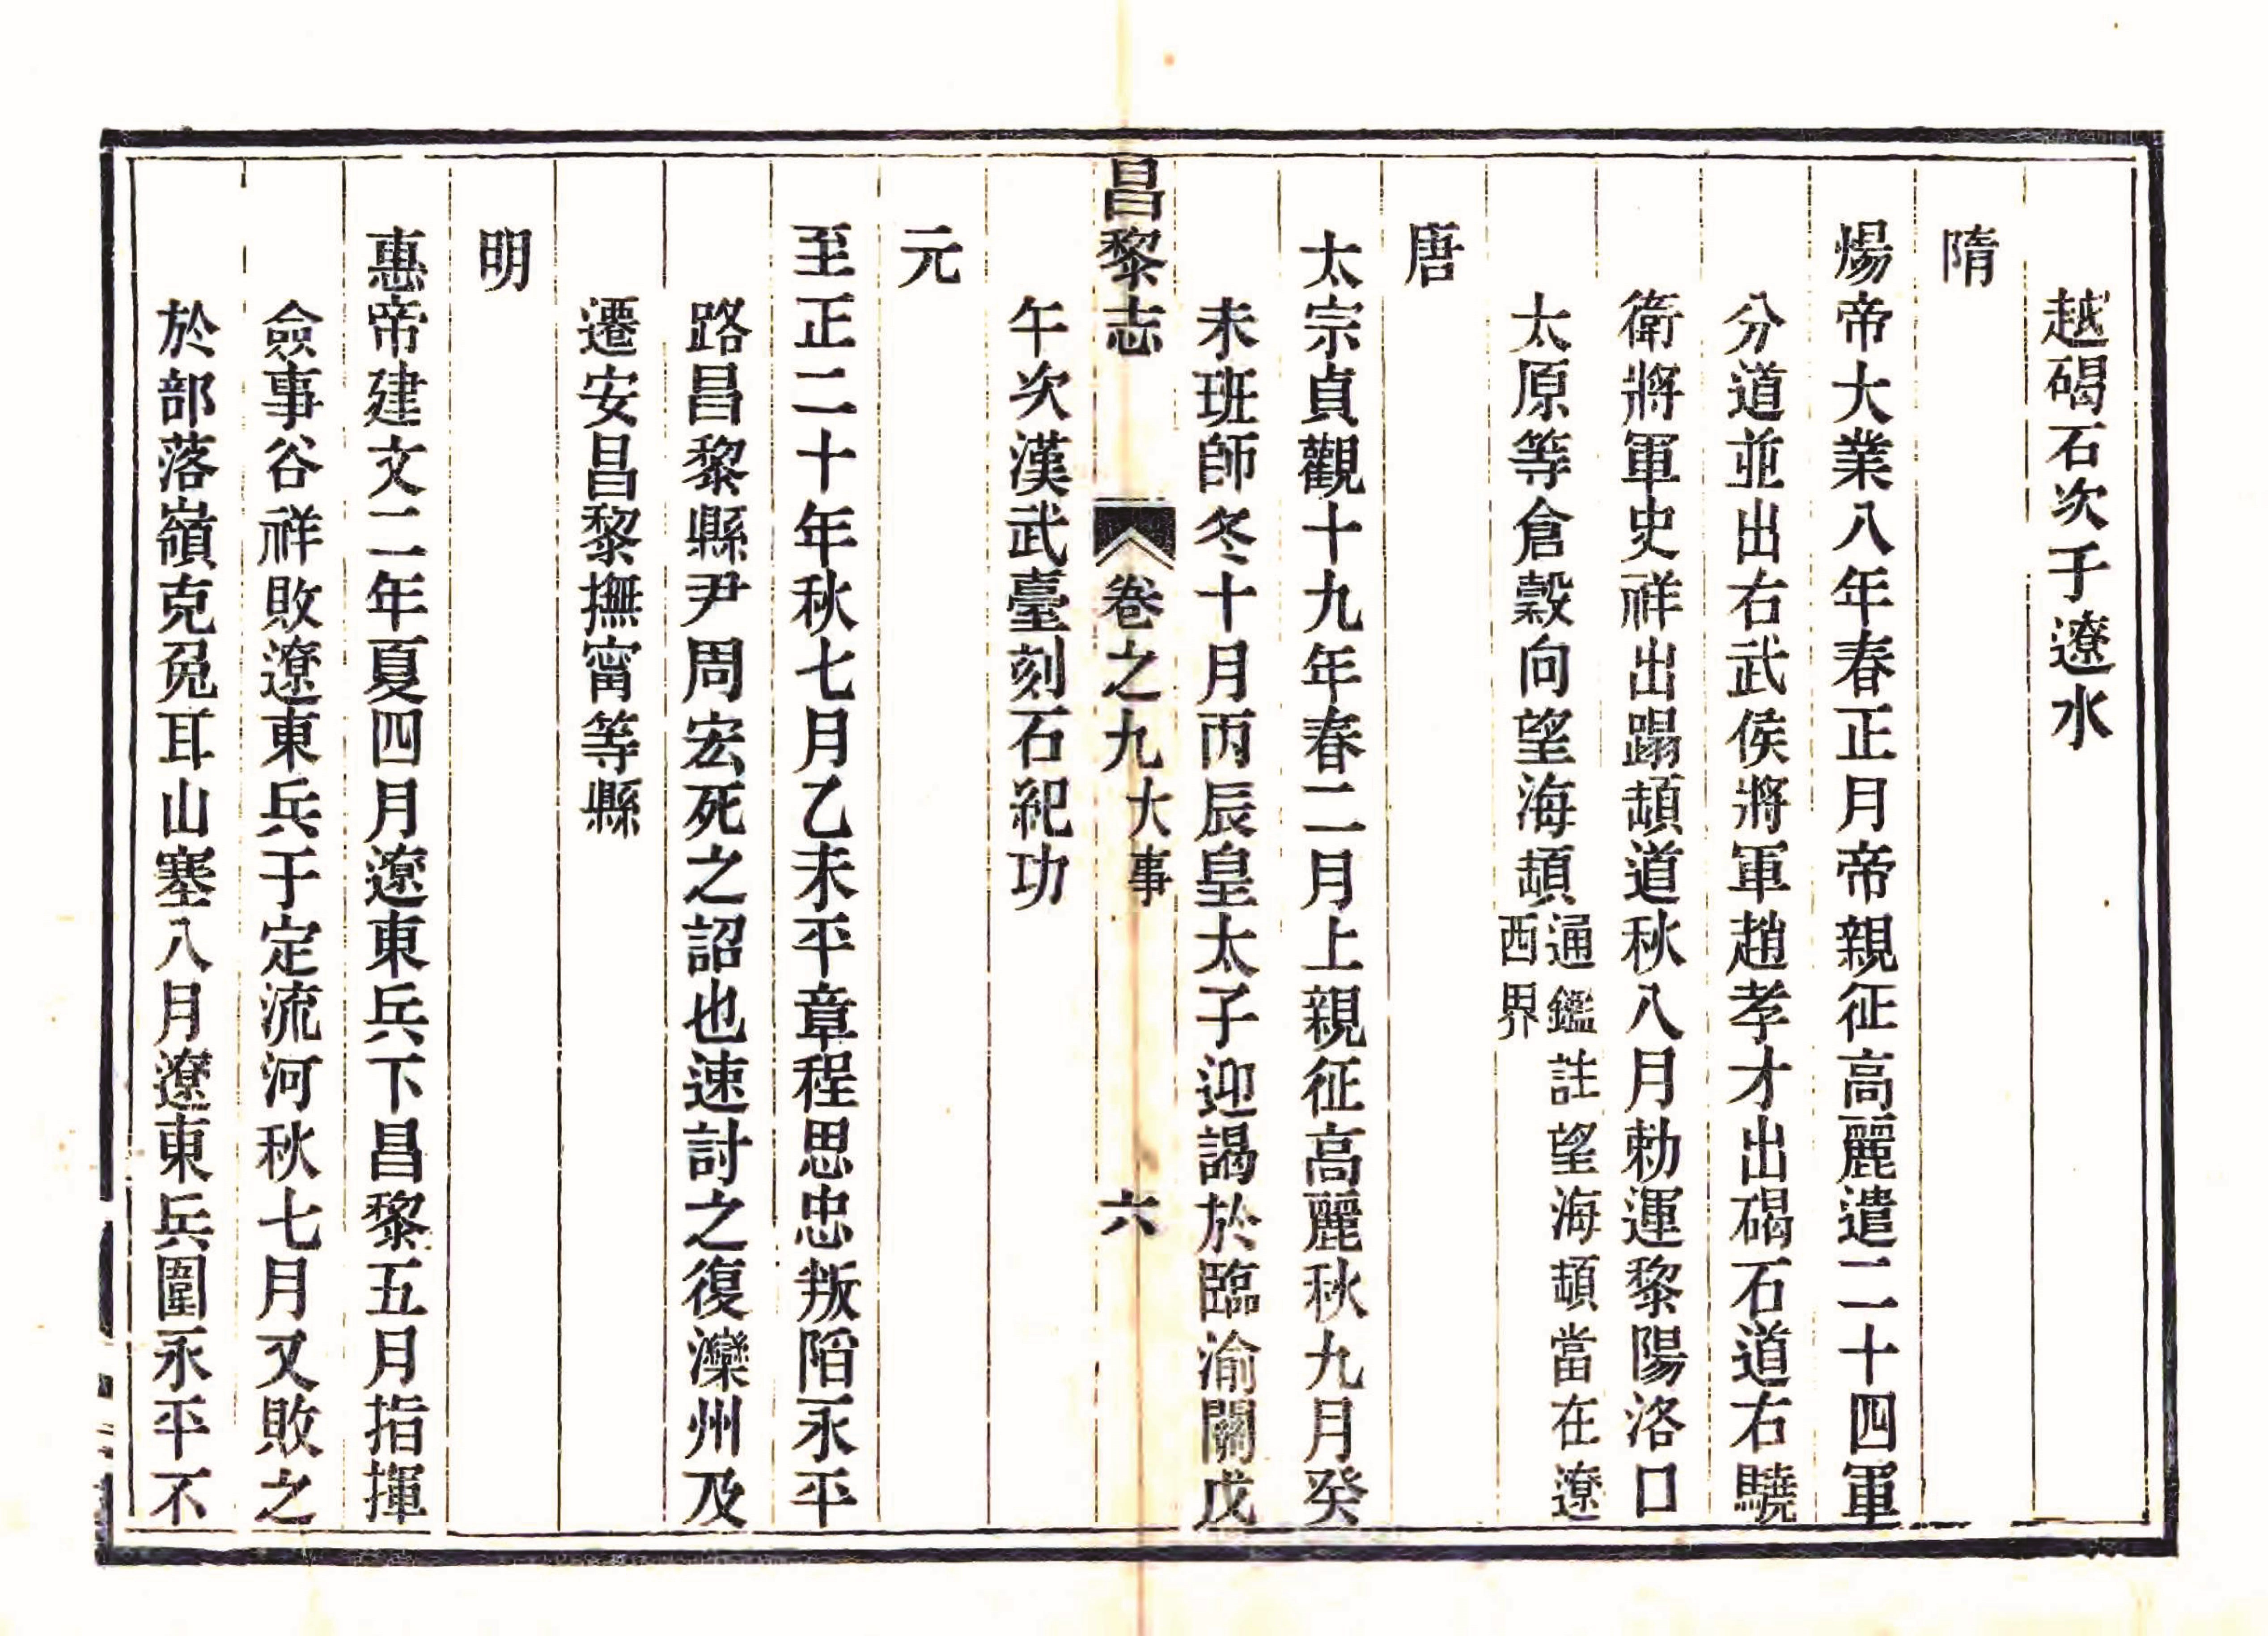 越碣石次于遼水
隋
煬帝大業八年春正月帝親征高麗遣二十四軍
分道並出右武侯將軍趙孝才出碣石道右驍
衛將軍史祥出蹋頓道秋八月勅運黎陽洛口
太原等倉穀向望海頓通鑑註望海頓當在遼
西界
唐
太宗貞觀十九年春二月上親征高麗秋九月癸
未班師冬十月丙辰皇太子迎謁於臨渝關戊
昌黎志 卷之九 大事 六
午次漢武臺刻石紀功
元
至正二十年秋七月乙未平章程思忠叛陷永平
路昌黎縣尹周宏死之詔也速討之復灤州及
遷安昌黎撫甯等縣
明
惠帝建文二年夏四月遼東兵下昌黎五月指揮
僉事谷祥敗遼東兵于定流河秋七月又敗之
於部落嶺克兔耳山塞八月遼東兵圍永平不